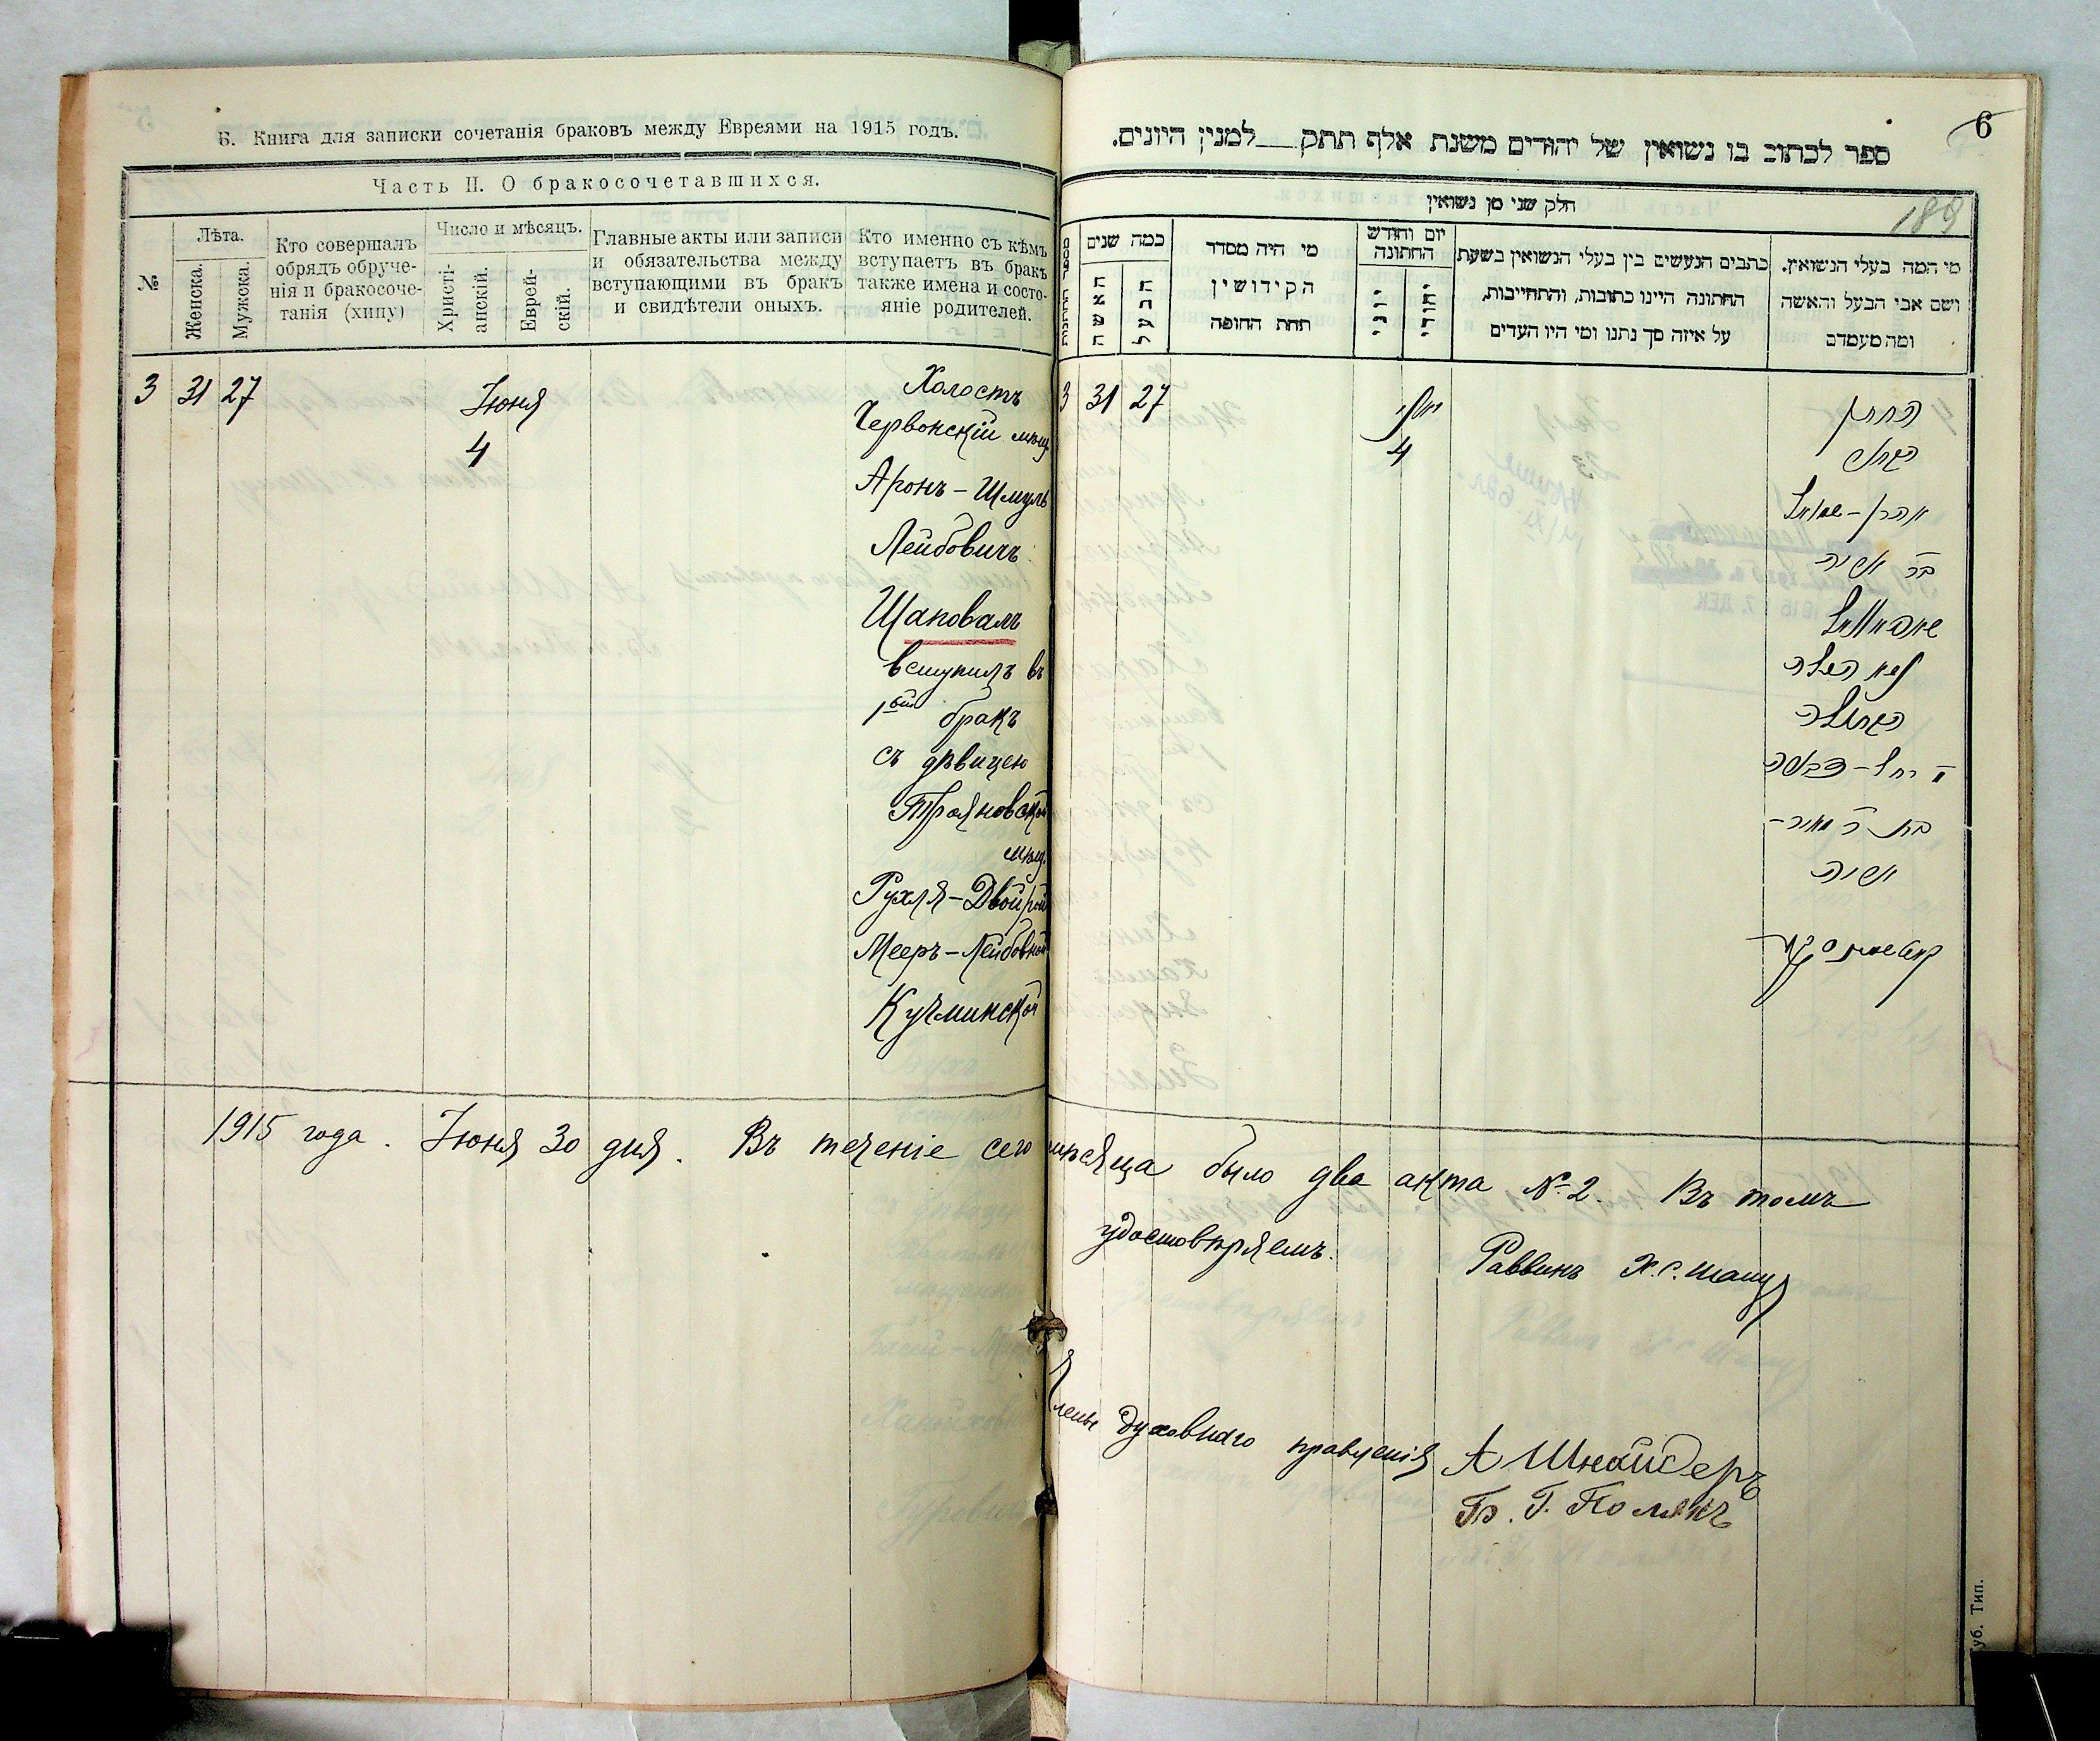 Б. Книга для записки сочетанія браковъ между Евреями на 1915 годъ.
Часть II. О бракосочетавшихся.
№
Лѣта.
Женска.
Мужска.
Кто совершалъ
обрядъ обруче-
нія и бракосоче-
танія (хипу)
Число и мѣсяцъ.
Христі-
анскій.
Еврей-
скій.
Главные акты или записи
и обязательства между
вступающими въ бракъ
и свидѣтели оныхъ.
Кто именно съ кѣмъ
вступаетъ въ бракъ
также имена и состо-
яніе родителей.
3 31 27
Іюня
4
Холостъ
Червонскій мѣщ.
Аронъ-Шмуль
Лейбовичъ
Шаповалъ
вступилъ въ
1ый бракъ
съ дѣвицею
Трояновской
мѣщ.
Рухля-Двойрой
Мееръ-Лейбовной
Кучминской
1915 года. Іюня 30 дня. Въ теченіе сего мѣсяца было два акта № 2. Въ томъ
удостовѣряемъ. Раввинъ Х. С. Шацъ
Члены Духовнаго правленія А Шнайдеръ
Б. Г. Полякъ
6
ספר לכתוב בו נשואין של יהודים משנת אלף תתק___למנין היונים.
189
חלק שני מן נשואין
כמה שנים
האשה
הבעל
מי היה מסדר
הקידושין
תחת החופה
יום וחודש
החתונה
יוני
יהודי
כתבים הנעשים בין בעלי הנשואין בשעת
החתונה היינו כתובות, והתחייבות,
על איזה סך נתנו ומי היו העדים
מי המה בעלי הנשואין,
ושם אבי הבעל והאשה
ומה מעמדם
3 31 27
יוני
4
החתן
הבחור
אהרן-שמואל
בר ליב
שאפאוואל
נשא
הבתולה
רחל-דבורה
בת ר׳ מאיר-
ליב
Губ. Тип.